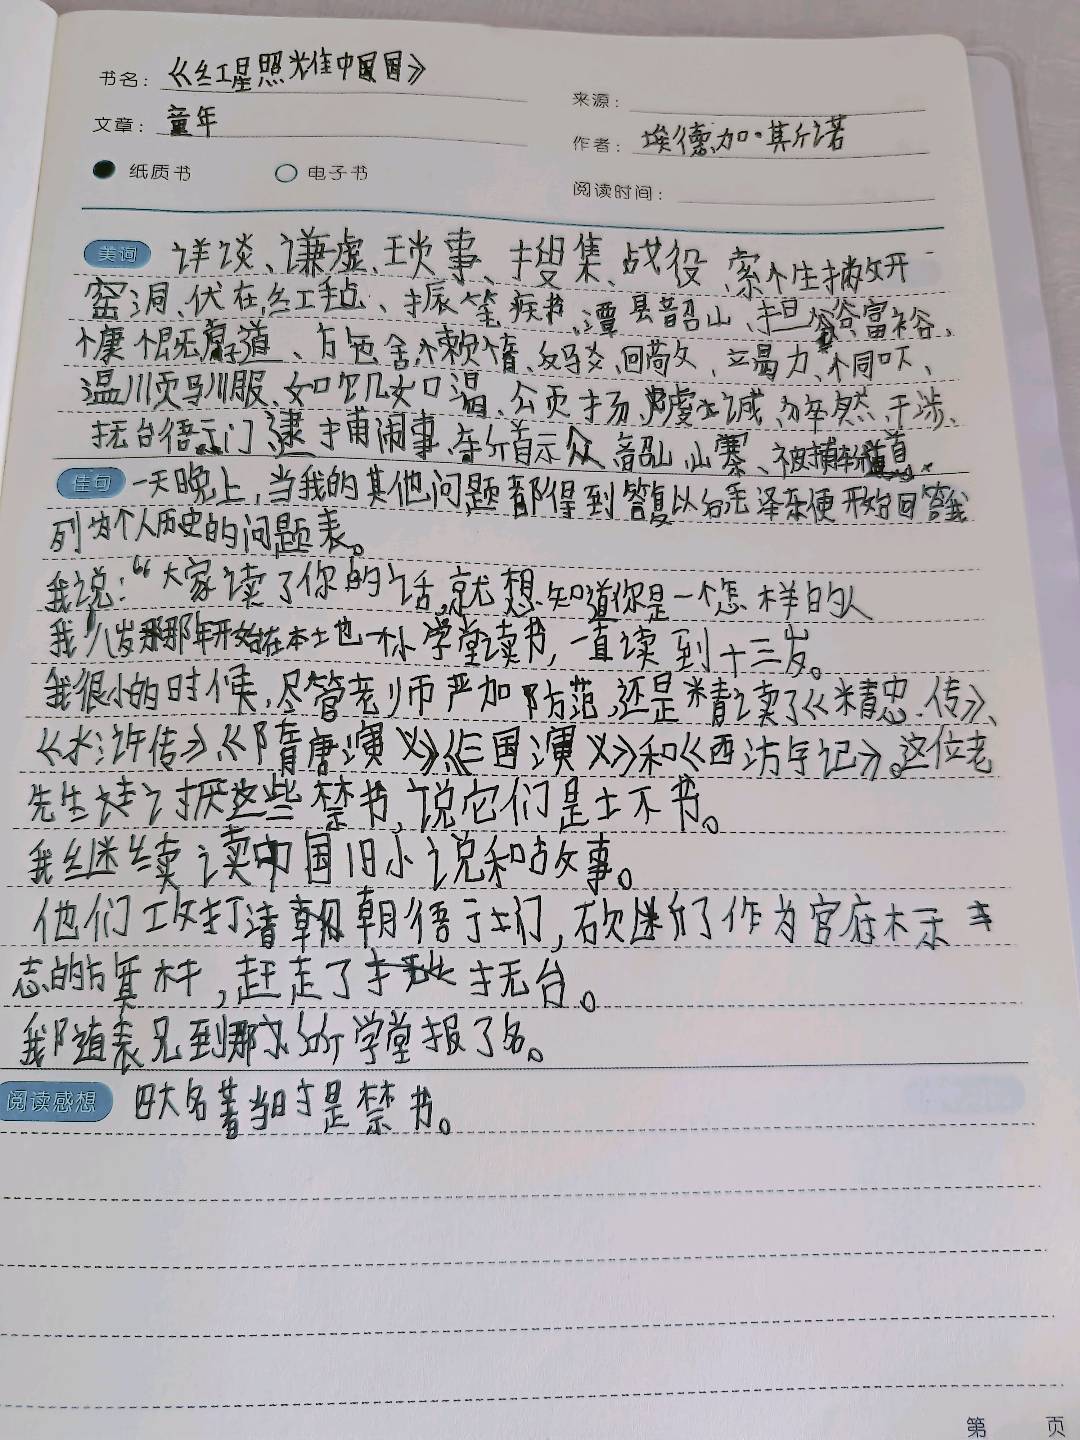 书名：《红星照耀中国》
来源：
文章：童年
作者：埃德加·斯诺
纸质书 电子书
阅读时间：
美词 详谈、谦虚、琐事、搜集、战役、索
窑洞、伏在、红毡、振笔疾书、潭县韶山、富裕、
慷慨 道、包含、懒惰、回 文、竭力、不同
温顺驯服、如饥如渴、公 扬、虔诚、 然、干涉、
抚台衙门、逮捕闹事、斩首示众、韶山山寨、被捕
佳句 一天晚上，当我的其他问题都得到答复以后毛泽东便开始回答我
列为个人历史的问题表。
我说：“大家读了你的话，就想知道你是一个怎样的人
我八岁那年开始在本地一小学堂读书，一直读到十三岁。
我很小的时候，尽管老师严加防范，还是精读了《精忠传》、
《水浒传》《隋唐演义》《三国演义》和《西游记》。这位老
先生 讨厌这些禁书，说它们是 书。
我继续读中国旧小说和故事。
他们攻打清朝衙门，砍断了作为官府标
志的旗杆，赶走了抚台。
我随表兄到那 学堂报了名。
阅读感想 四大名著当时是禁书。
第 页